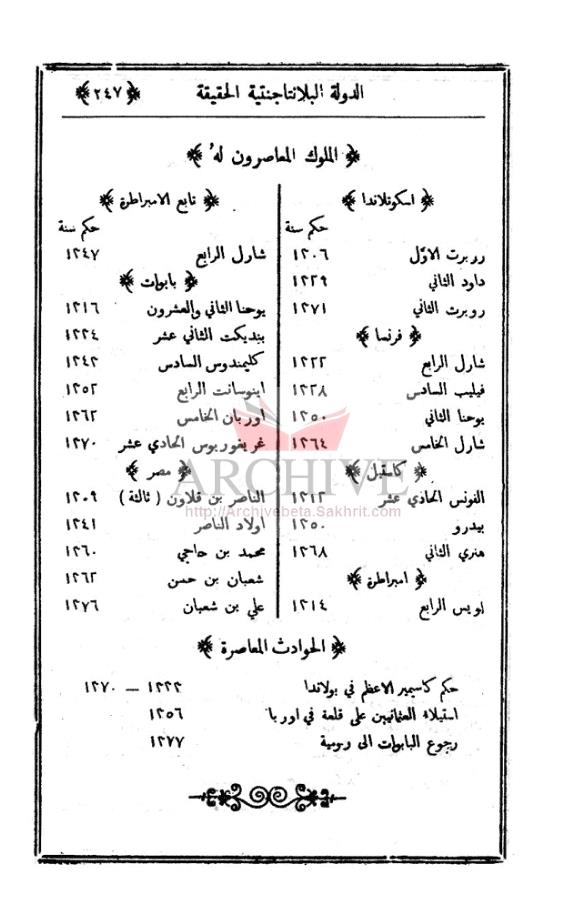 الدولة البلانتاجنتية الحقيقة ﴿٢٤٧﴾
﴿ الملوك المعاصرون لهُ ﴾
﴿ اسكوتلاندا ﴾
حكم سنة
روبرت الاوّل ١٣٠٦
داود الثاني ١٣٢٩
روبرت الثاني ١٣٧١
﴿ فرنسا ﴾
شارل الرابع ١٣٢٢
فيليب السادس ١٣٢٨
يوحنا الثاني ١٣٥٠
شارل الخامس ١٣٦٤
﴿ كاستيل ﴾
الفونس الحادي عشر ١٣١٢
بيدرو ١٣٥٠
هنري الثاني ١٣٦٨
﴿ امبراطرة ﴾
لويس الرابع ١٣١٤
﴿ تابع الامبراطرة ﴾
حكم سنة
شارل الرابع ١٣٤٧
﴿ بابوات ﴾
يوحنا الثاني والعشرون ١٣١٦
بنديكت الثاني عشر ١٣٣٤
كليمندوس السادس ١٣٤٢
اينوسانت الرابع ١٣٥٢
اوربان الخامس ١٣٦٢
غريغوريوس الحادي عشر ١٣٧٠
﴿ مصر ﴾
الناصر بن قلاون ( ثالثة ) ١٣٠٩
اولاد الناصر ١٣٤١
محمد بن حاجي ١٣٦٠
شعبان بن حسن ١٣٦٢
علي بن شعبان ١٣٧٦
﴿ الحوادث المعاصرة ﴾
حكم كاسيمير الاعظم في بولاندا ١٣٣٣ — ١٣٧٠
استيلاء العثمانيين على قلعة في اوربا ١٣٥٦
رجوع البابوات الى رومية ١٣٧٧
ARCHIVE
http://Archivebeta.Sakhrit.com